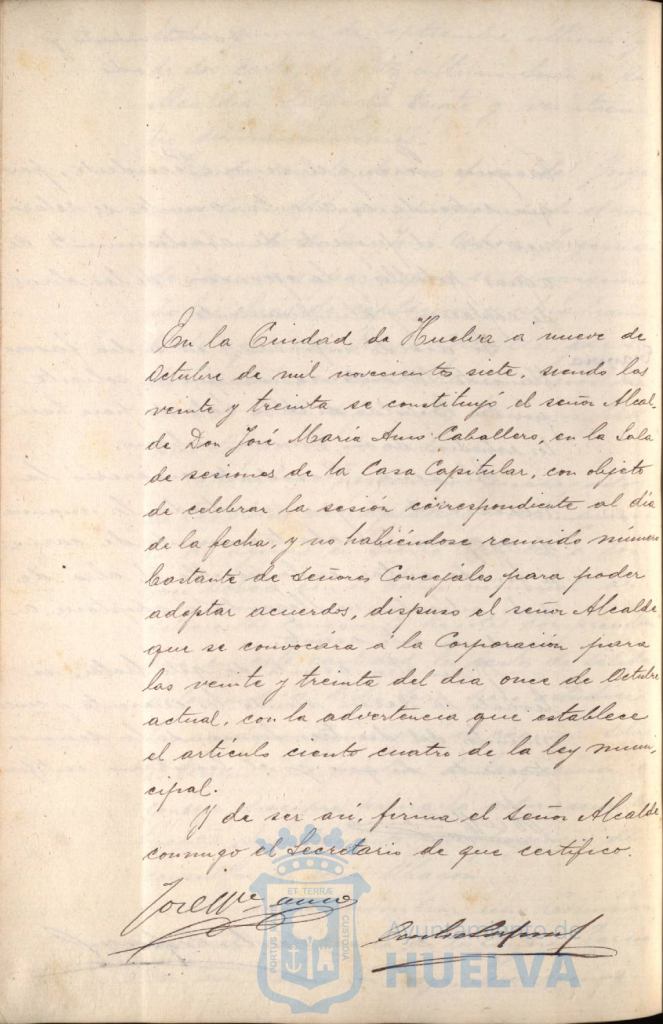 En la Ciudad de Huelva á nueve de
Octubre de mil novecientos siete, siendo las
veinte y treinta se constituyó el señor Alcal-
de Don José María Amo Caballero, en la Sala
de sesiones de la Casa Capitular, con objeto
de celebrar la sesión correspondiente al día
de la fecha, y no habiéndose reunido número
bastante de señores Concejáles para poder
adoptar acuerdos, dispuso el señor Alcalde
que se convocára á la Corporación para
las veinte y treinta del dia once de Octubre
actual, con la advertencia que establece
el artículo ciento cuatro de la ley muni-
cipal.
Y de ser así, firma el señor Alcalde
conmigo el Secretario de que certifico.
José Mª Amo
ET TERRÆ
PORTUS MARIS
CUSTODIA
Ayuntamiento de
HUELVA